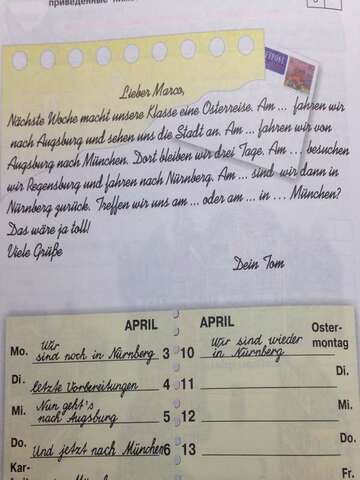 приведённые ниже
Lieber Marco,
Nächste Woche macht unsere Klasse eine Osterreise. Am ... fahren wir
nach Augsburg und sehen uns die Stadt an. Am ... fahren wir von
Augsburg nach München. Dort bleiben wir drei Tage. Am ... besuchen
wir Regensburg und fahren nach Nürnberg. Am ... sind wir dann in
Nürnberg zurück. Treffen wir uns am ... oder am ... in ... München?
Das wäre ja toll!
Viele Grüße
Dein Tom
APRIL
Mo. Wir sind noch in Nürnberg 3
Di. letzte Vorbereitungen 4
Mi. Nun geht's nach Augsburg 5
Do. Und jetzt nach München 6
Kar-
APRIL
10 Wir sind wieder in Nürnberg Oster-
montag
11 Di.
12 Mi.
13 Do.
Fr.